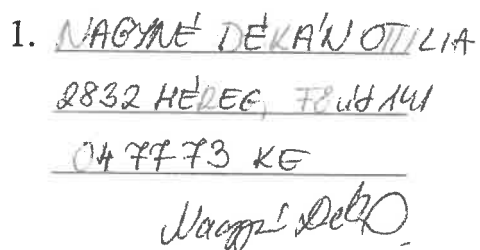 1. NAGYNÉ DÉKÁN OTILIA
2832 HÉREG,
047773 KE